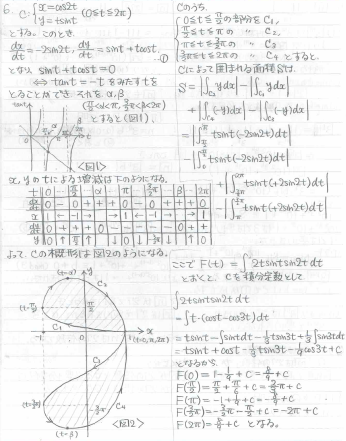 6. C: {x=cos2t
y=tsint (0≦t≦2π)
とする。このとき、
dx/dt = -2sin2t, dy/dt = sint + tcost, ①
となり sint + tcost = 0
⇔ tant = -t をみたすtを
とることができ、それを α, β
(π/2<α<π, 3/2π<β<2π)
とすると(図1)。
tant
0 π/2 α π 3/2π β t
<図1>
x, yのtによる増減は下のようになる。
t 0 … π/2 … α … π … 3/2π … β … 2π
dx/dt 0 - 0 + + + 0 - 0 + + + 0
x 1 ← -1 → → 1 ← -1 → → 1
y 0 ↑ π/2 ↑ ↓ 0 ↓ -3/2π ↓ ↑ 0
よって、Cの概形は図2のようになる。
(t=α) y
C2
(t=π/2) π/2
C1
-1 0 1 x
(t=0,π,2π)
C3
(t=3/2π) -3/2π
C4
(t=β)
<図2>
Cのうち、
{0≦t≦π/2の部分をC1,
π/2≦t≦π の 〃 C2,
π≦t≦3/2πの 〃 C3,
3/2π≦t≦2πの 〃 C4 とすると、
Cによって囲まれる面積Sは、
S = |∫C2 ydx| - |∫C1 ydx|
+ |∫C4 (-y)dx| - |∫C3 (-y)dx|
= |∫ tsint(-2sin2t)dt|
- |∫ tsint(-2sin2t)dt|
+ |∫ tsint(+2sin2t)dt|
- |∫ tsint(+2sin2t)dt|
ここで F(t) = ∫2tsintsin2t dt
とおくと、Cを積分定数として
∫2tsintsin2t dt
= ∫t·(cost-cos3t)dt
= tsint - ∫sintdt - 1/3tsin3t + 1/3∫sin3tdt
= tsint + cost - 1/3tsin3t - 1/9cos3t + C
となるから、
F(0) = 1 - 1/9 + C = 8/9 + C
F(π/2) = π/2 + π/6 + C = 2/3π + C
F(π) = -1 + 1/9 + C = -8/9 + C
F(3/2π) = -3/2π - π/2 + C = -2π + C
F(2π) = 8/9 + C となる。